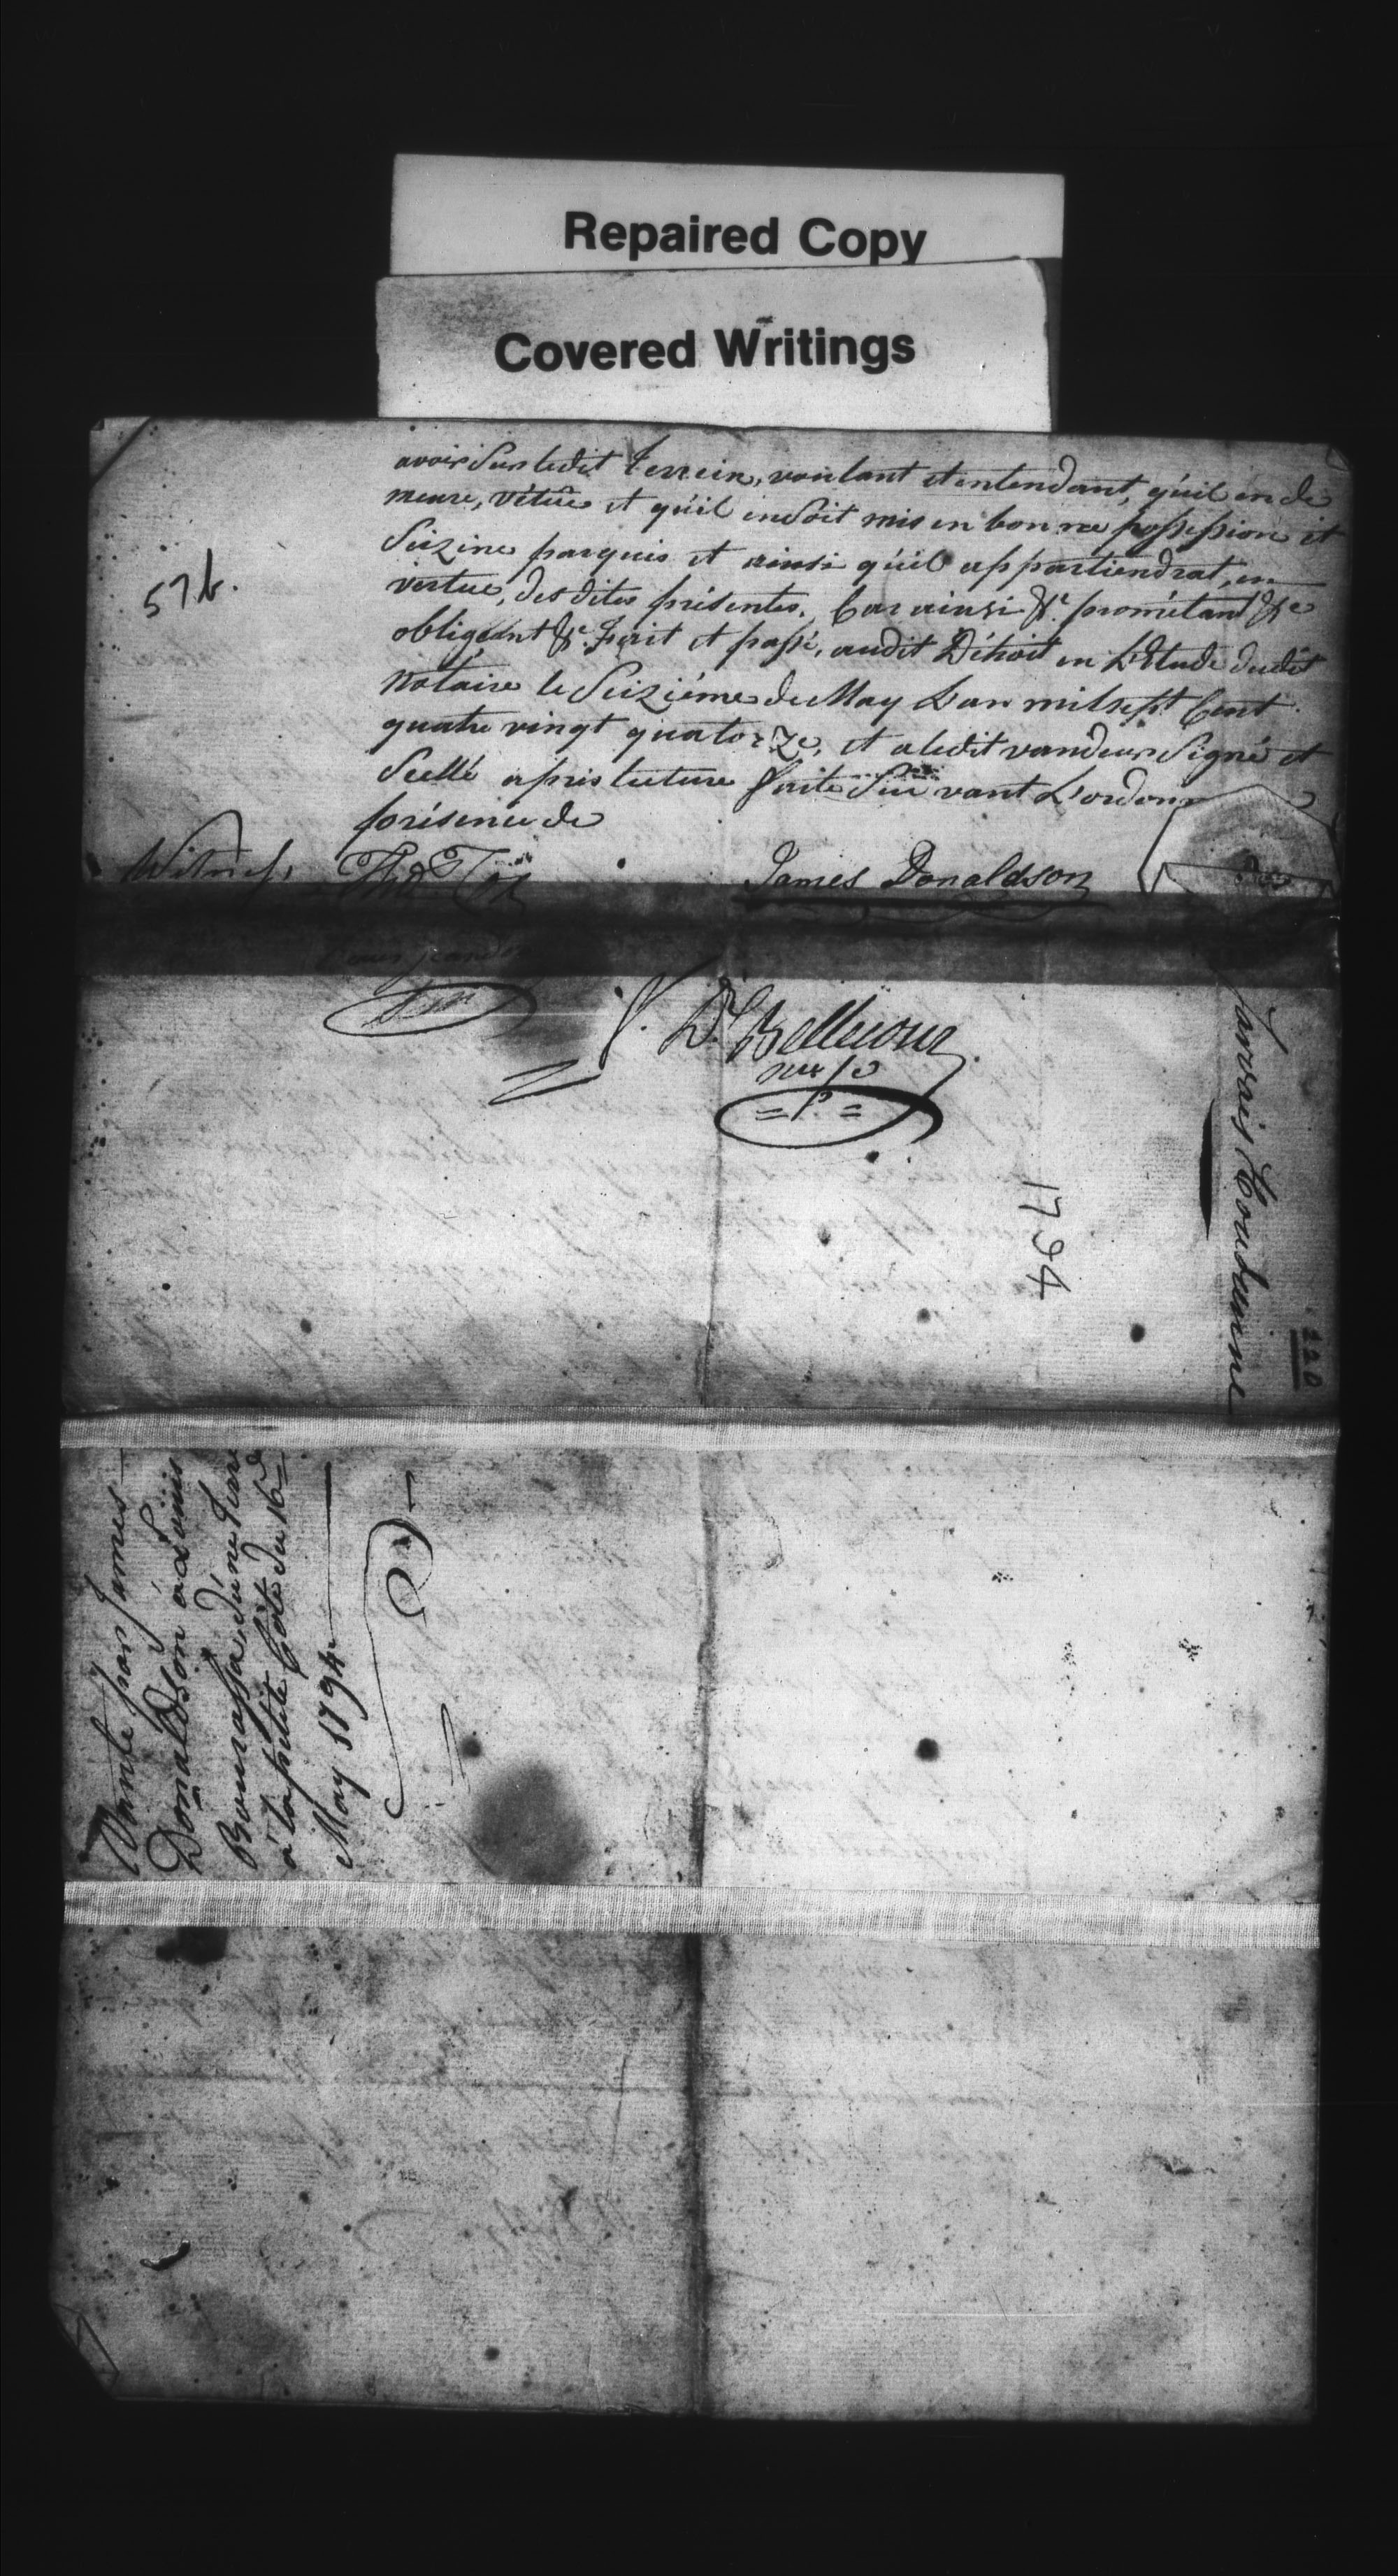 Repaired Copy
Covered Writings
avoir Sur ledit terrein, voulant et entendant, qu'il en de
meure, vétüe et qu'il en Soit mis en bonne possession et
Seizine parquis et ainsi qu'il appartiendrat, en
vertue, des dites présentes. Car ainsi &c. prométant &c
obligeant &c. Fait et passé, audit Détroit en L'Etude dudit
notaire le Seiziéme de May L'an mil sept Cent
quatre vingt quatorze, et a ledit vandeur Signé et
Scellé apris lecture faite Suivant L'ordon
présence de
57b.
Witness
James Donaldson
Dr. Bellecour
1794
220
Vante par James
Donaldson à Louis
Bourassa, d'úne terre
à la petite Côte du 16 de
May 1794